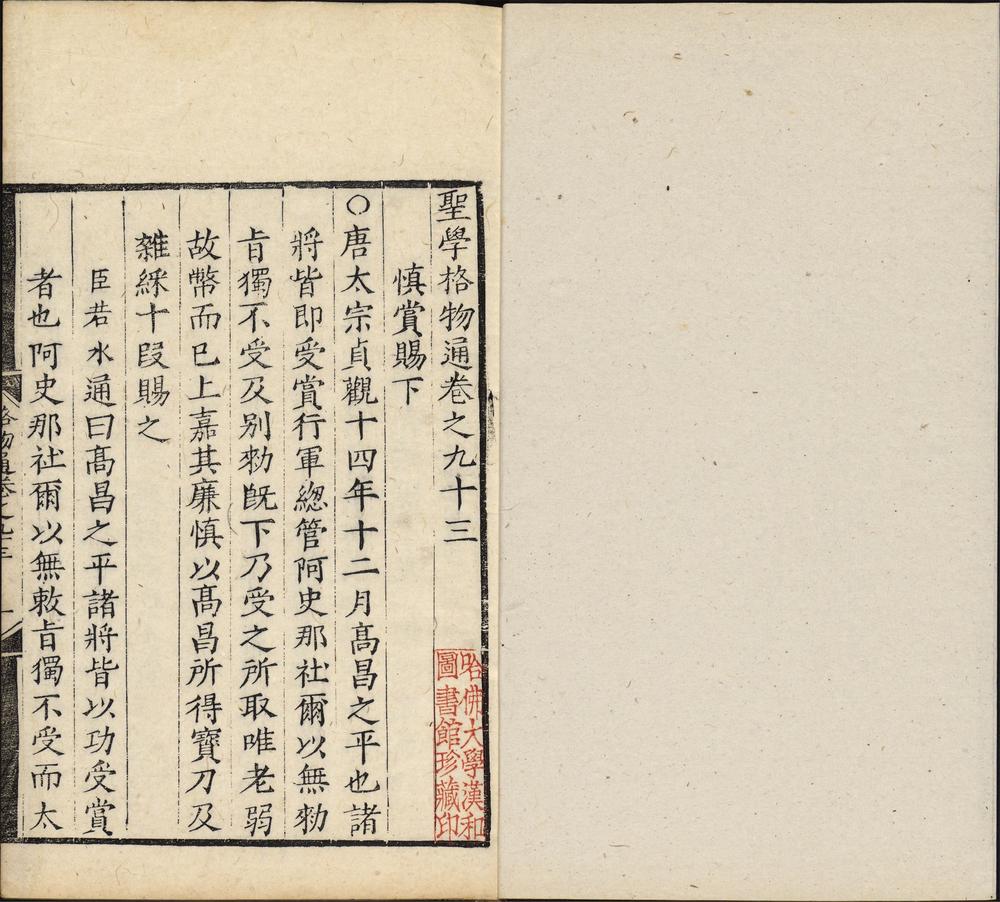 聖學格物通卷之九十三
慎賞賜下
○唐太宗貞觀十四年十二月髙昌之平也諸
將皆即受賞行軍總管阿史那社爾以無勑
㫖獨不受及别勑旣下乃受之所取唯老弱
故幣而已上嘉其廉慎以髙昌所得寶刀及
雜綵十段賜之
臣若水通曰髙昌之平諸將皆以功受賞
者也阿史那社爾以無敕㫖獨不受而太
格物通卷之九十三
一
哈佛大學漢和
圖書館珍藏印